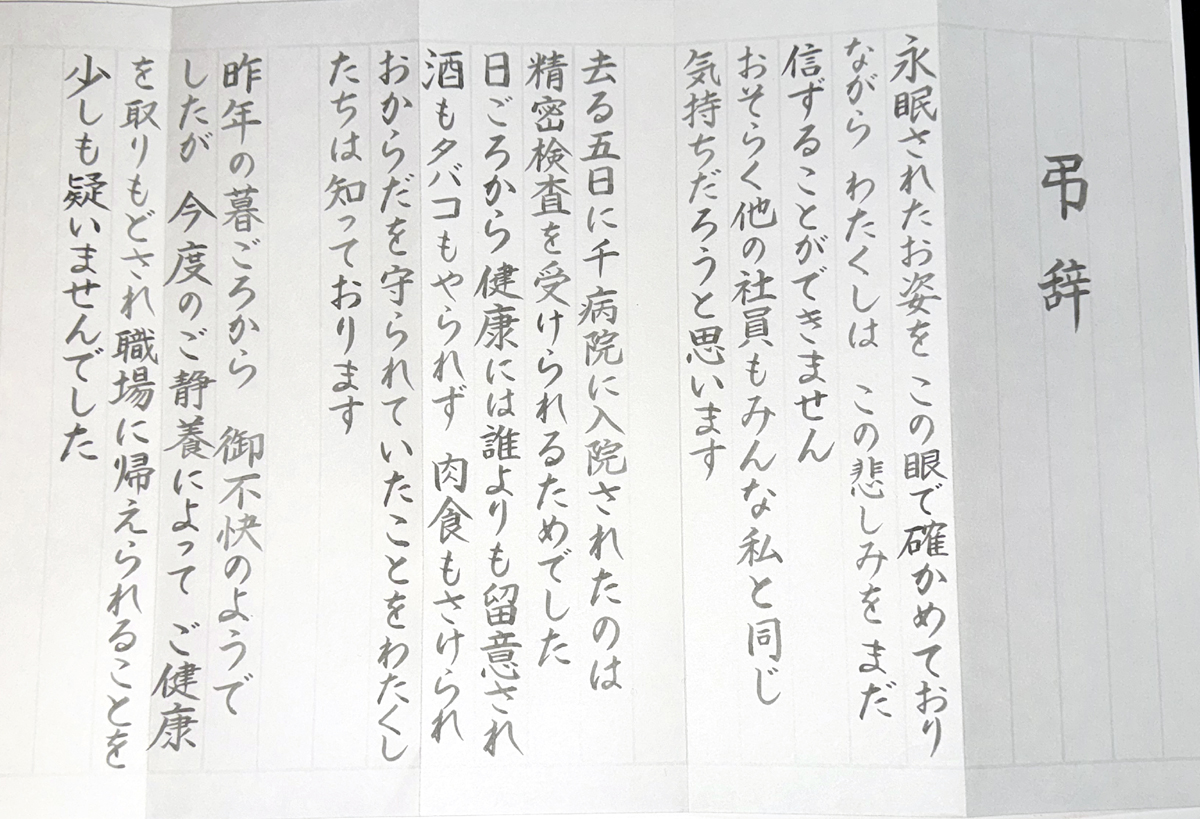 弔辞
永眠されたお姿を この眼で確かめており
ながら わたくしは この悲しみを まだ
信ずることができません
おそらく他の社員もみんな私と同じ
気持ちだろうと思います
去る五日に千病院に入院されたのは
精密検査を受けられるためでした
日ごろから 健康には誰よりも留意され
酒もタバコもやられず 肉食もさけられ
おからだを守られていたことをわたくし
たちは知っております
昨年の暮ごろから 御不快のようで
したが 今度のご静養によって ご健康
を取りもどされ職場に帰えられることを
少しも疑いませんでした